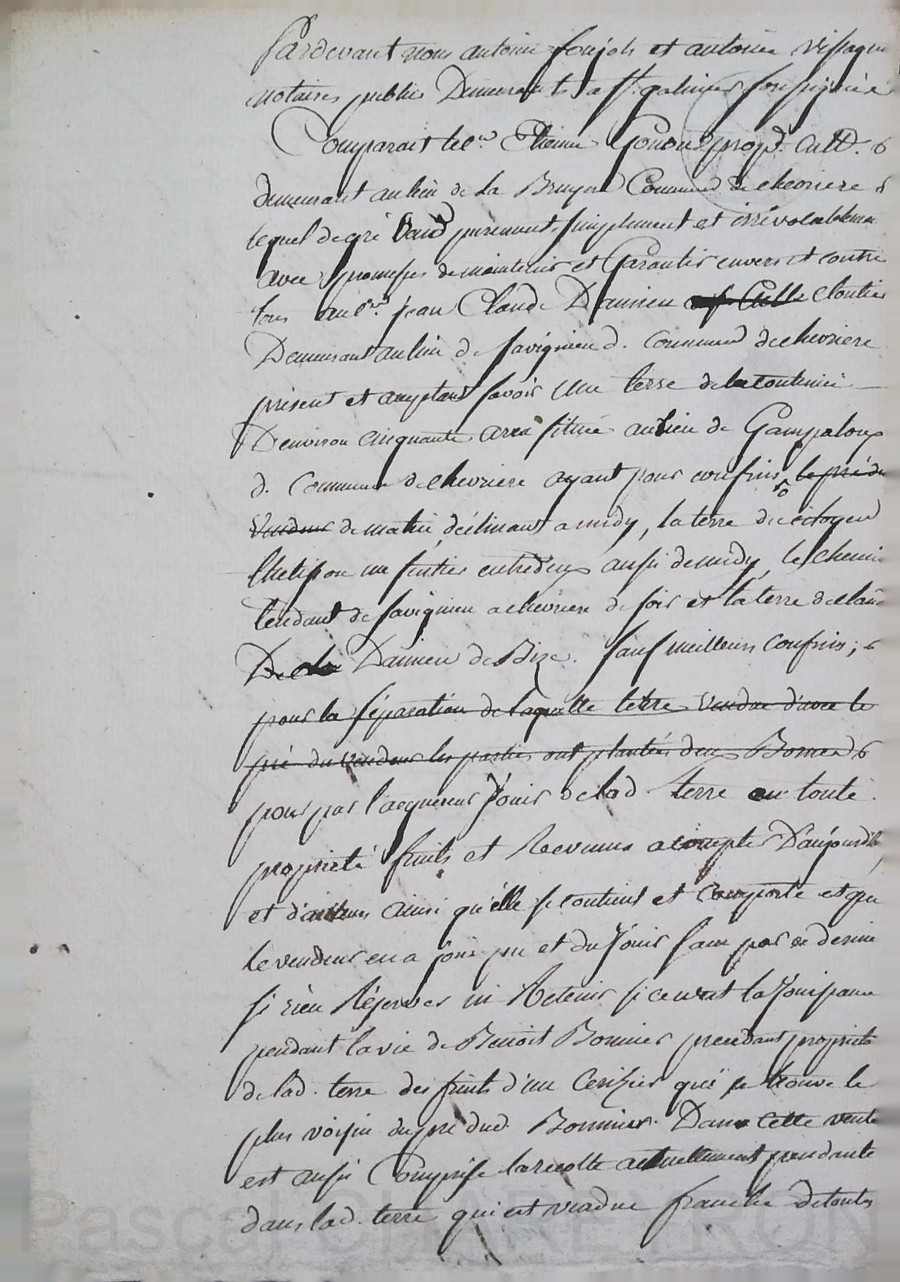 Pardevant nous antoine et antoine
notaires publics Demeurants a st. galmier soussignés
Comparait le cen. Etienne prop.
demeurant au lieu de la Bruyere Commune de chevriere
lequel de gré Vend purement, simplement et irrévocablement
avec promesses de maintenir et Garantir envers et contre
tous au cen. jean Claude Damien cloutier
Demeurant au lieu de savignieu d. commune de chevriere
présent et acceptant savoir une terre de la contenue
D'environ cinquante ares située au lieu de
d. commune de chevriere ayant pour confins le pré du
Vendeur de matin déclinant a midy, la terre du citoyen
un sentier entredeux aussi de midy, le chemin
tendant de savignieu a chevriere de soir et la terre
Damien de Bize. sauf meilleurs confins;
pour la séparation de laquelle terre Vendue d'avec le
pré du vendeur les parties ont plantés deux Bornes
pour par l'acquereur jouir de lad. terre en toute
propriété fruits et Revenus a compter D'aujourd'huy
et ainsi qu'elle se contient et comporte et que
le vendeur en a joui pu et du jouir sans par ce dernier
si rien Réserver ni Retenir si ce n'est la jouissance
pendant la vie de Benoit Bonnier propriété
de lad. terre des fruits d'un Cerizier qui se trouve le
plus voisin du pré dud. Bonnier. Dans cette vente
est aussi Comprise la recolte actuellement pendante
dans lad. terre qui est vendue franche de toutes
Pascal CHAREYRON